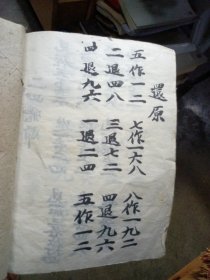 還原
五作一二 七作一六八 八作一九二
二退四八 三退七二 四退九六
四退九六 一退二四 五作一二